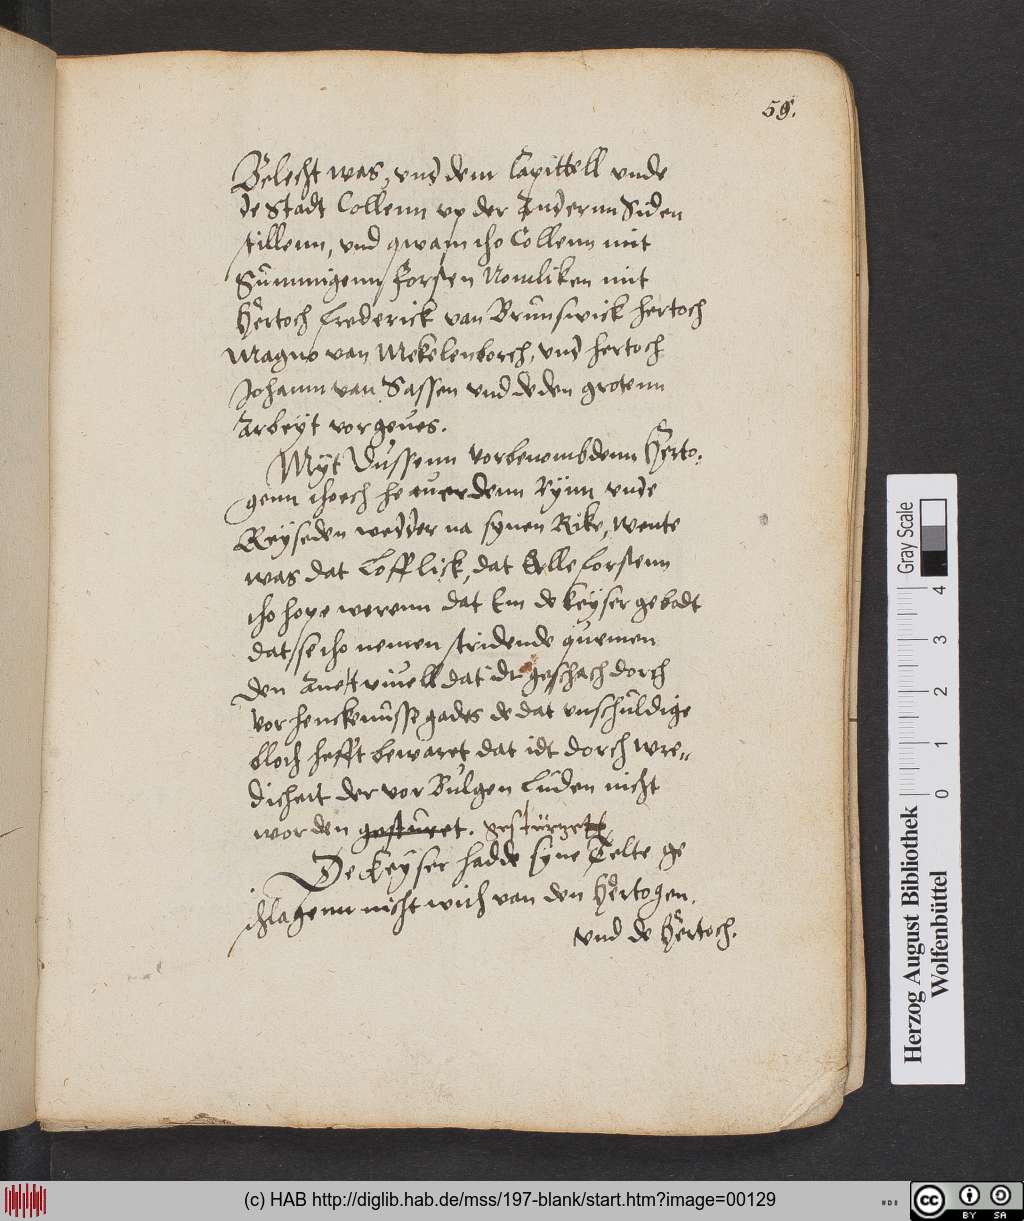 59.
Belecht was, vnd dem Capittell vnde
de Stadt Collenn vp der Andernn Siden
stillenn, vnd qwam tho Collenn mit
Sümmigenn Forsten Nomliken mit
Hertoch Frederick van Brunswick hertoch
Magno van Mekelenborch, vnd hertoch
Johann van Sassen vnd deden grotenn
Arbeyt vorgeues.
Myt Dussenn Vorbenombdenn Herto-
genn thoech he auerdenn Rÿnn vnde
Reÿseden wedder na synen Rike, Wente
was dat Lofflick, dat Alle Forstenn
tho hope werenn dat Em de Keÿser gebodt
dat se tho nemen stridende quemen
Den Anetwiuell dat idt geschach dorch
Vorhenckenüsse gades de dat vnschüldige
bloth hefft bewaret dat idt dorch wre-
dicheit der vor Bulgen Lüden nicht
worden gestüret. gestürzet
De Keÿser hadde syne Telte ge
schlagenn nicht with van den Hertogen.
vnd de Hertoch.
Herzog August Bibliothek
Wolfenbüttel
Gray Scale
0 1 2 3 4
(c) HAB http://diglib.hab.de/mss/197-blank/start.htm?image=00129
HAB
cc BY SA